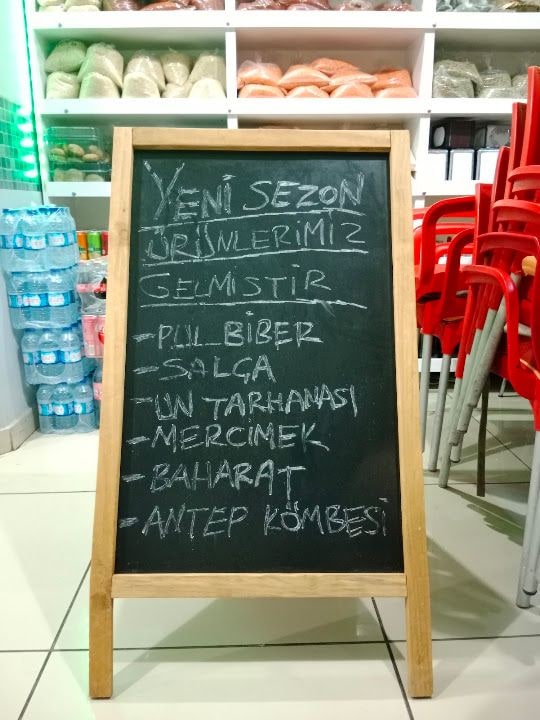 YENİ SEZON
ÜRÜNLERİMİZ
GELMİSTİR
-PUL BİBER
-SALÇA
-UN TARHANASI
-MERCİMEK
-BAHARAT
-ANTEP KÖMBESİ